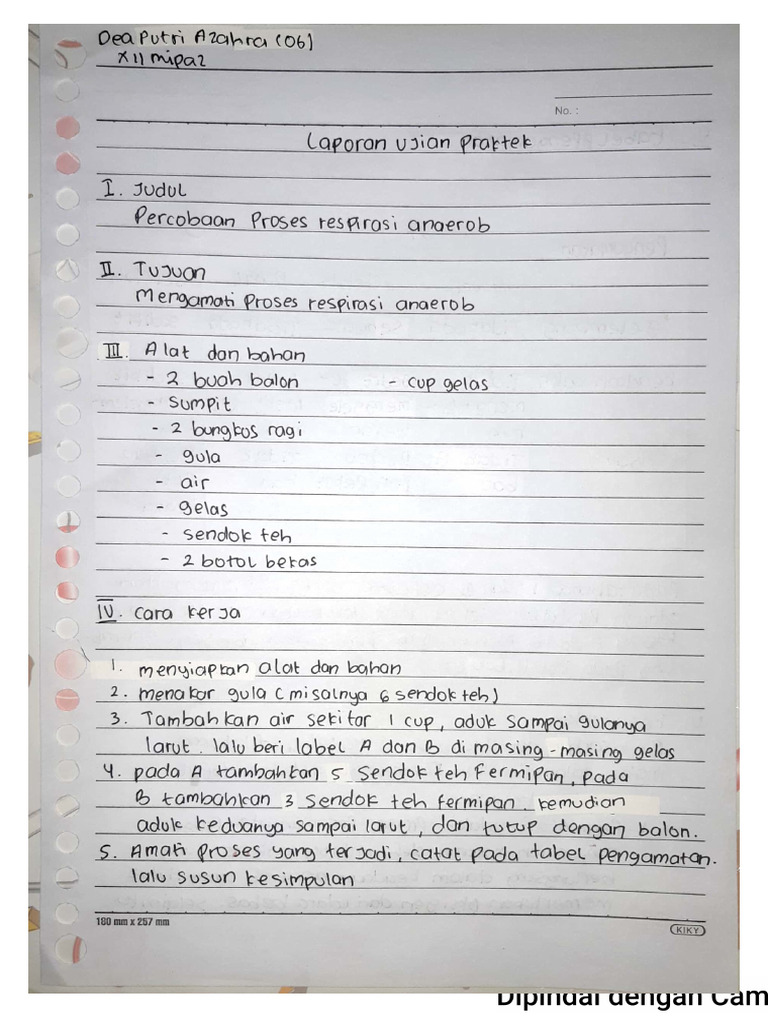 Dea Putri Azahra (06)
XII mipa2
No. :
Laporan Ujian Praktek
I. Judul
Percobaan Proses respirasi anaerob
II. Tujuan
Mengamati Proses respirasi anaerob
III. Alat dan bahan
- 2 buah balon - cup gelas
- Sumpit
- 2 bungkus ragi
- gula
- air
- gelas
- sendok teh
- 2 botol bekas
IV. cara kerja
1. menyiapkan alat dan bahan
2. menakar gula (misalnya 6 sendok teh)
3. Tambahkan air sekitar 1 cup, aduk sampai gulanya
larut. lalu beri label A dan B di masing-masing gelas
4. pada A tambahkan 5 sendok teh Fermipan, pada
B tambahkan 3 sendok teh fermipan. kemudian
aduk keduanya sampai larut, dan tutup dengan balon.
5. Amati proses yang terjadi, catat pada tabel pengamatan.
lalu susun kesimpulan
180 mm x 257 mm KIKY
Dipindai dengan Cam